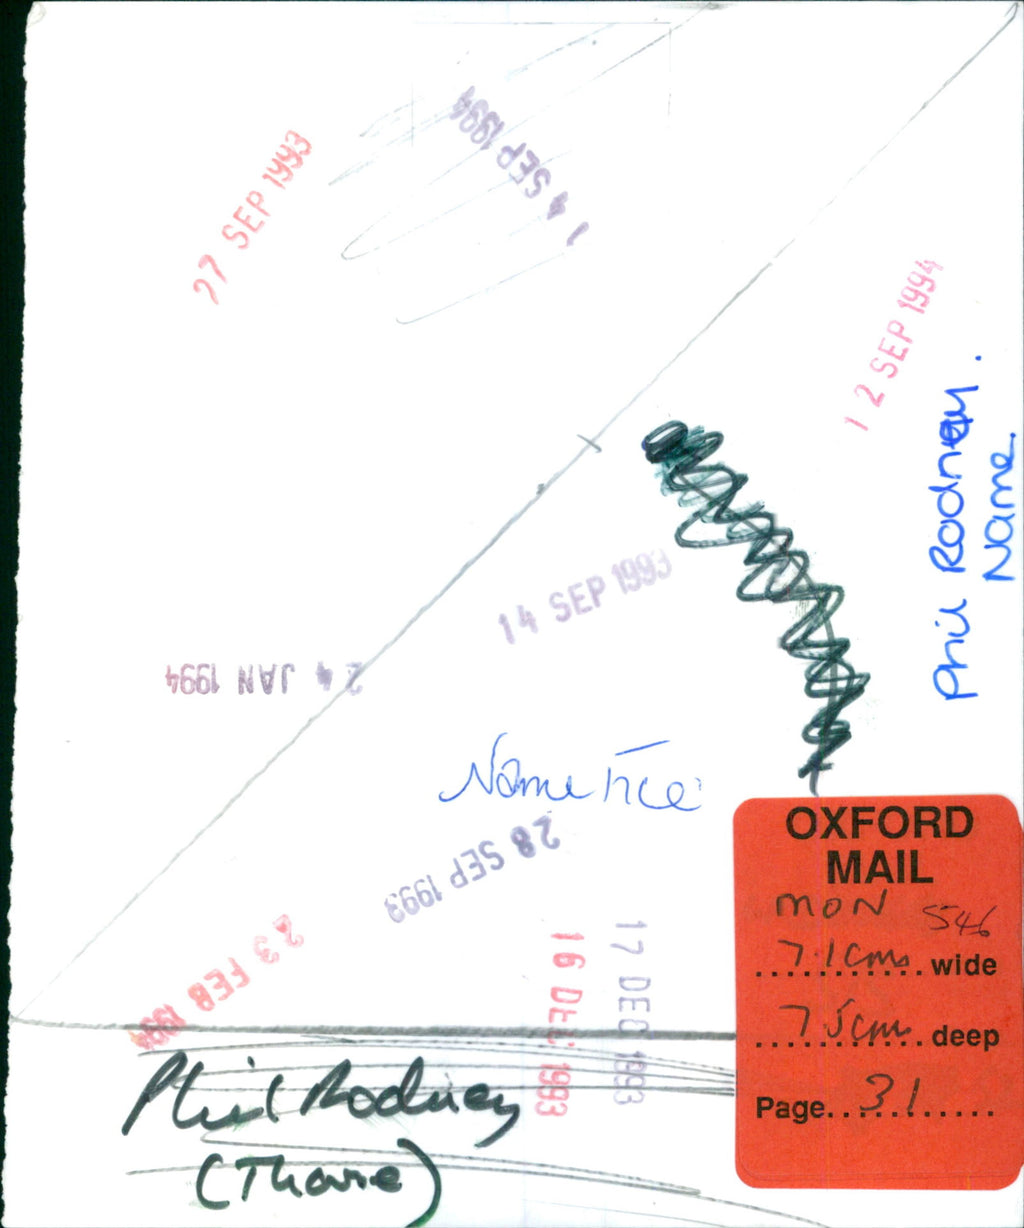 27 SEP 1993
14 SEP 1994
12 SEP 1994
Phil Rodney.
Name.
14 SEP 1993
24 JAN 1994
28 SEP 1993
23 FEB 1994
16 DEC 1993
17 DEC 1993
OXFORD
MAIL
MON 546
7.1cms wide
7.5cms deep
Page...31...
Phil Rodney
(Thame)